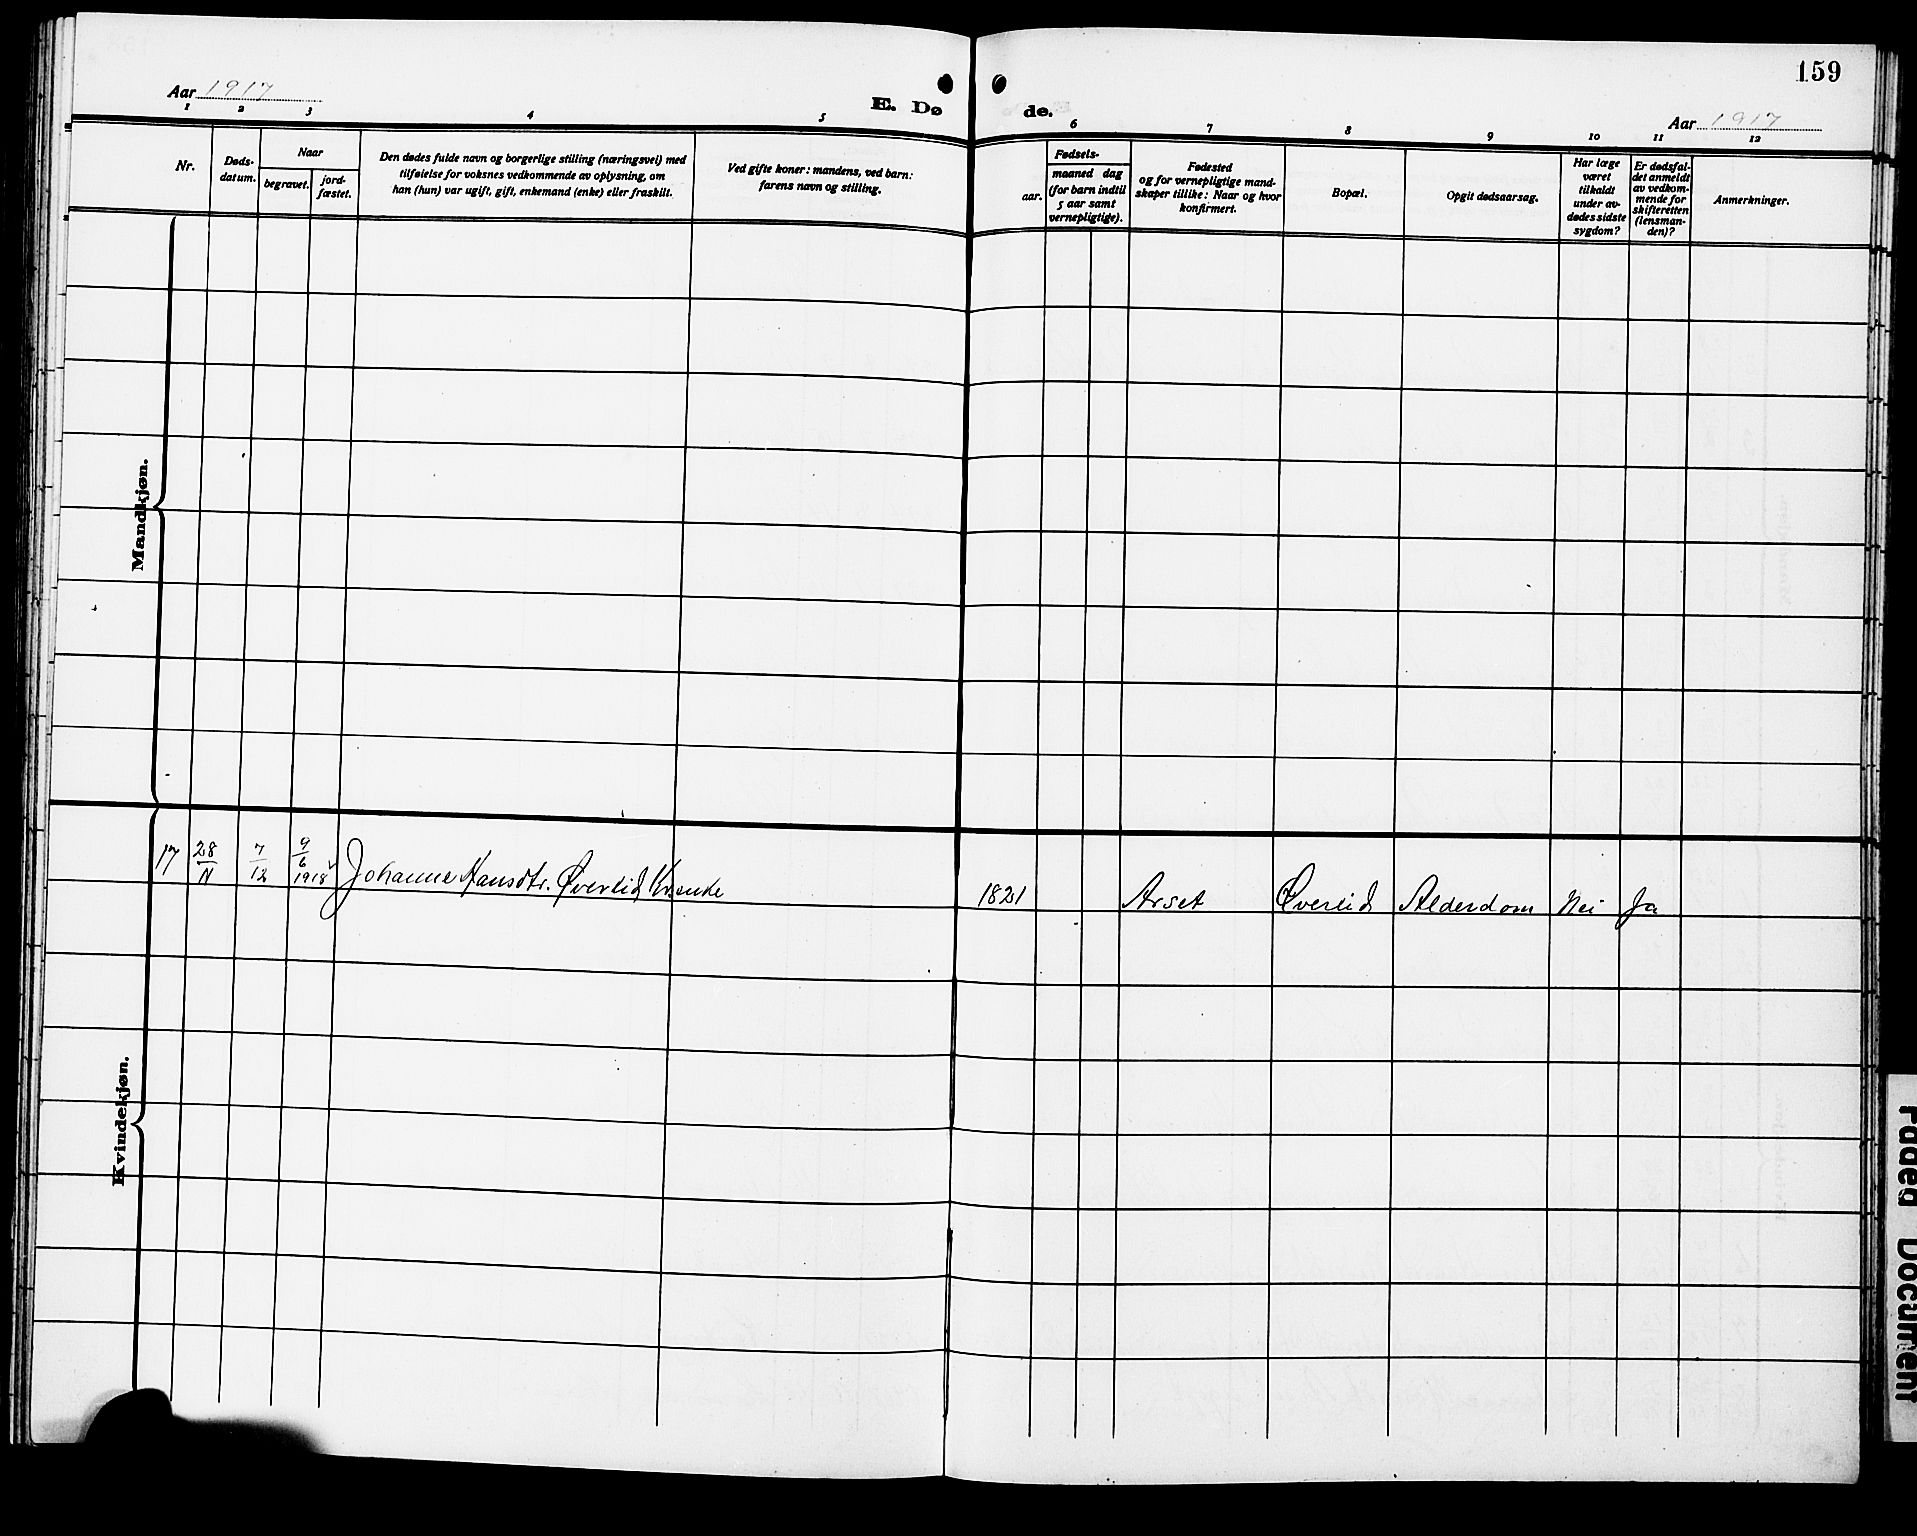 159
Aar 1917
E. Dø
de.
Aar 1917
1 2 3 4 5 6 7 8 9 10 11 12
Nr.
Døds-
datum.
Naar
begravet.
jord-
fæstet.
Den dødes fulde navn og borgerlige stilling (næringsvei) med
tilføielse for voksnes vedkommende av oplysning, om
han (hun) var ugift, gift, enkemand (enke) eller fraskilt.
Ved gifte koner: mandens, ved barn:
farens navn og stilling.
Fødsels-
aar.
maaned dag
(for barn indtil
5 aar samt
vernepligtige).
Fødested
og for vernepligtige mand-
skaper tillike: Naar og hvor
konfirmert.
Bopæl.
Opgit dødsaarsag.
Har læge
været
tilkaldt
under av-
dødes sidste
sygdom?
Er dødsfal-
det anmeldt
av vedkom-
mende for
skifteretten
(lensman-
den)?
Anmerkninger.
Mandkjøn.
Kvindekjøn.
17 28/11 7/12 9/6 1918 Johanne Hansdtr. Øverlid enke 1821 Arset Øverlid Alderdom Nei Ja
Paged Document